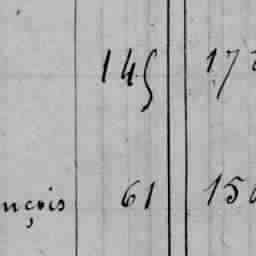 145 17
nçois 61 15